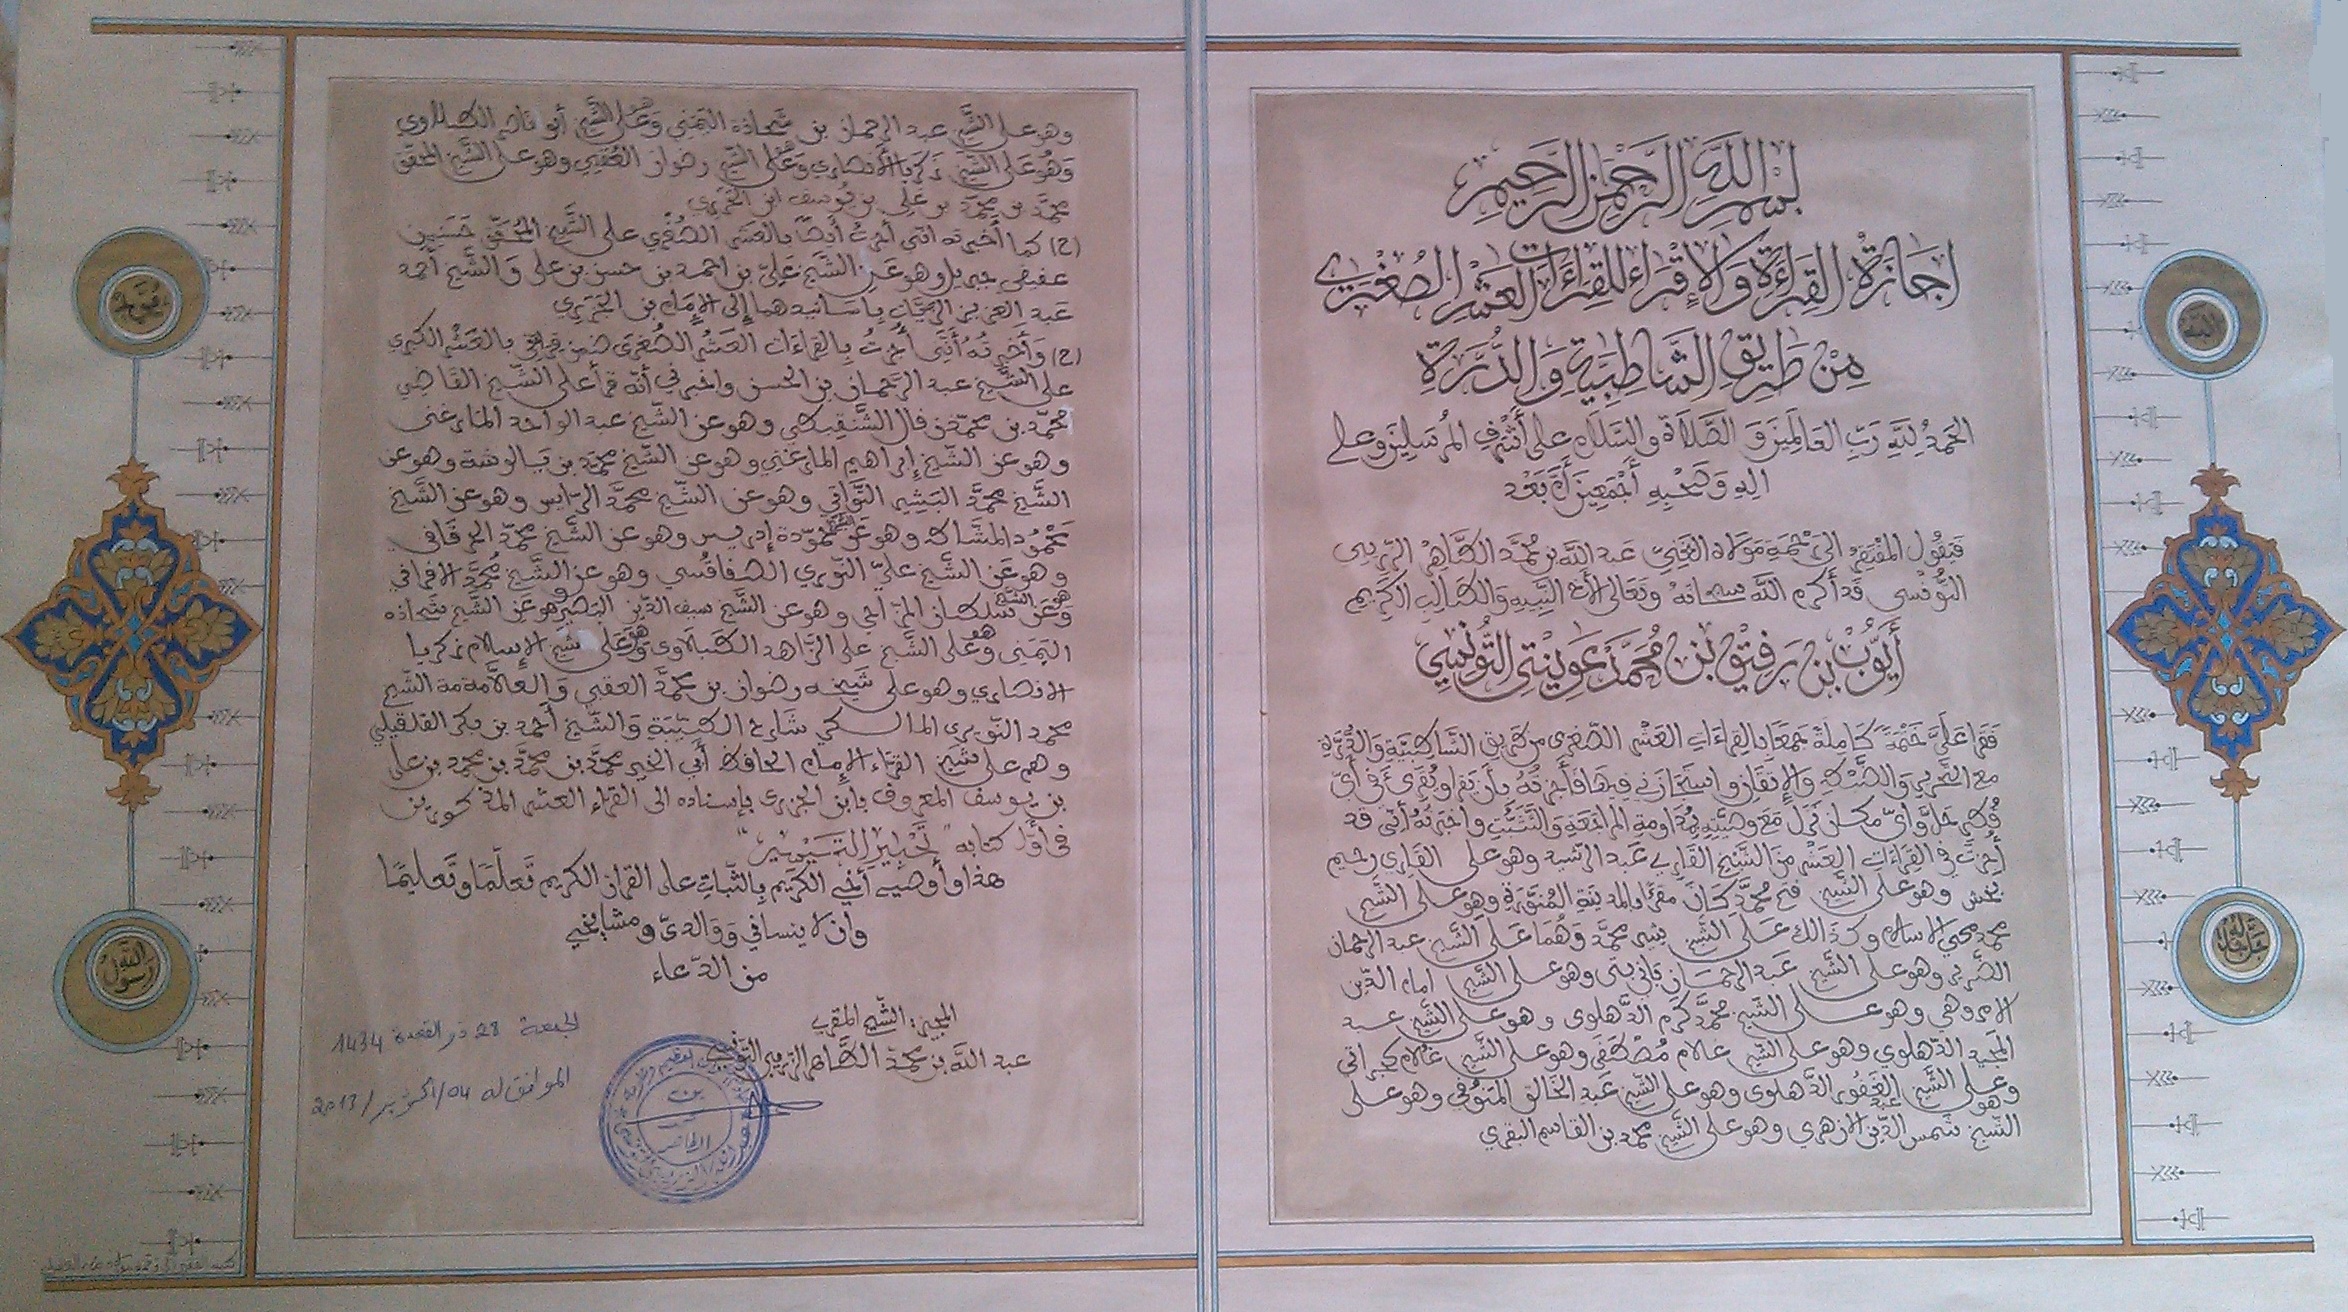 بسم الله الرحمن الرحيم
اجازة القراءة والإقراء للقراءات العشر الصغرى
من طريق الشاطبية والدرة
الحمد لله رب العالمين والصلاة والسلام على أشرف المرسلين وعلى
اله وصحبه أجمعين أما بعد
فيقول المفتقر الى رحمة مولاه الغني عبد الله بن محمد الطاهر الزريبي
التونسي قد أكرم الله سبحانه وتعالى الأخ النبيه والطالب الكريم
أيوب بن رفيق بن محمد عوينتي التونسي
فقرأ علي ختمة كاملة جمعا بالقراءات العشر الصغرى من طريق الشاطبية والدرة
مع التحرير والضبط والإتقان واستجازني فيها فأجزته بأن يقرأ ويقرئ في أي
قطر حل وأي مكان نزل مع وصيته بمداومة المراجعة والتثبت وأخبرته أنني قد
أجزت في القراءات العشر من الشيخ القارئ عبد الرشيد وهو على القارئ رحيم
بخش وهو على الشيخ فتح محمد كان مقرئا بالمدينة المنورة وهو على الشيخ
محمد محيي الاسلام وكذالك على الشيخ شير محمد وهما على الشيخ عبد الرحمان
الضرير وهو على الشيخ عبد الرحمان باني بتي وهو على الشيخ امام الدين
الامروهي وهو على الشيخ محمد كرم الدهلوي وهو على الشيخ عبد
المجيد الدهلوي وهو على الشيخ غلام مصطفى وهو على الشيخ غلام كجراتي
وهو على الشيخ عبد الغفور الدهلوي وهو على الشيخ عبد الخالق المنوفي وهو على
الشيخ شمس الدين الازهري وهو على الشيخ محمد بن القاسم البقري
وهو على الشيخ عبد الرحمان بن شحاذة اليمني وهو على الشيخ أبو ناصر الطبلاوي
وهو على الشيخ زكريا الأنصاري وهو على الشيخ رضوان العقبي وهو على الشيخ المحقق
محمد بن محمد بن علي بن يوسف ابن الجزري
(2) كما أخبرته أنني أجزت أيضا بالعشر الصغرى على الشيخ المحقق حسنين
عفيفي جبريل وهو عن الشيخ علي بن احمد بن حسن بن علي والشيخ أحمد
عبد العزيز الزيات بأسانيدهما إلى الإمام بن الجزري
(2) وأخبرته أنني أجزت بالقراءات العشر الصغرى ضمن قراءتي بالعشر الكبرى
على الشيخ عبد الرحمان بن الحسن واخبرني أنه قرأ على الشيخ القاضي
محمد بن محمذن فال الشنقيطي وهو عن الشيخ عبد الواحد المارغني
وهو عن الشيخ إبراهيم المارغني وهو عن الشيخ محمد بن يالوشة وهو عن
الشيخ محمد البشير التواتي وهو عن الشيخ محمد الرايس وهو عن الشيخ
محمود المشاط وهو عن الشيخ حمودة إدريس وهو عن الشيخ محمد الحرقافي
وهو عن الشيخ علي النوري الصفاقسي وهو عن الشيخ محمد الافراني
وهو عن الشيخ سلطان المزاحي وهو عن الشيخ سيف الدين البصير وهو عن الشيخ شحاذة
اليمني وهو على الشيخ على الزاهد الطبلاوي وهو على شيخ الإسلام زكريا
الانصاري وهو على شيخه رضوان بن محمد العقبي والعلامة الشيخ
محمد النويري المالكي شارح الطيبة والشيخ أحمد بن بكر القلقيلي
وهم على شيخ القراء الإمام الحافظ أبي الخير محمد بن محمد بن محمد بن علي
بن يوسف المعروف بابن الجزري بإسناده الى القراء العشر المذكورين
في أول كتابه "تحبير التيسير"
هذا وأوصي أخي الكريم بالثبات على القرآن الكريم تعلما وتعليما
وان لا ينساني ووالدي ومشايخي
من الدعاء
المجيز: الشيخ المقرئ
عبد الله بن محمد الطاهر الزريبي التونسي
الجمعة 28 ذو القعدة 1434
الموافق له 04/اكتوبر/2013
بن
محمد
الطاهر
الله
جل جلاله
محمد
رسول الله